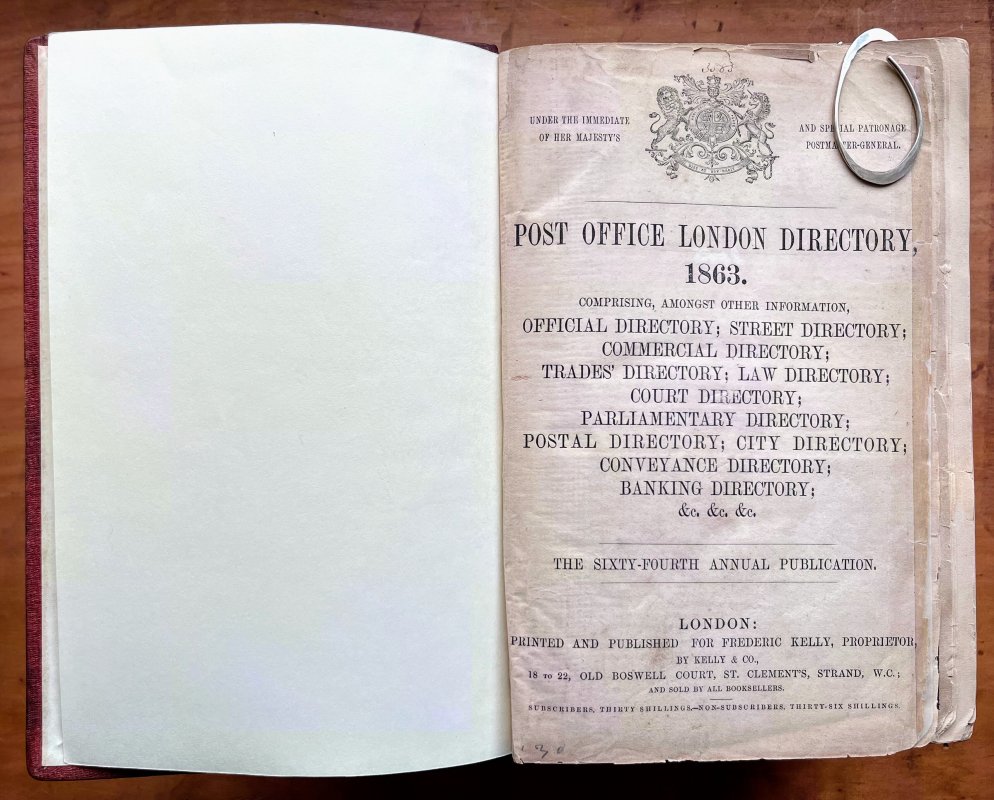 UNDER THE IMMEDIATE AND SPECIAL PATRONAGE
OF HER MAJESTY'S POSTMASTER-GENERAL.
POST OFFICE LONDON DIRECTORY,
1863.
COMPRISING, AMONGST OTHER INFORMATION,
OFFICIAL DIRECTORY; STREET DIRECTORY;
COMMERCIAL DIRECTORY;
TRADES' DIRECTORY; LAW DIRECTORY;
COURT DIRECTORY;
PARLIAMENTARY DIRECTORY;
POSTAL DIRECTORY; CITY DIRECTORY;
CONVEYANCE DIRECTORY;
BANKING DIRECTORY;
&c. &c. &c.
THE SIXTY-FOURTH ANNUAL PUBLICATION.
LONDON:
PRINTED AND PUBLISHED FOR FREDERIC KELLY, PROPRIETOR,
BY KELLY & CO.,
18 TO 22, OLD BOSWELL COURT, ST. CLEMENT'S, STRAND, W.C.;
AND SOLD BY ALL BOOKSELLERS.
SUBSCRIBERS, THIRTY SHILLINGS.—NON-SUBSCRIBERS, THIRTY-SIX SHILLINGS.